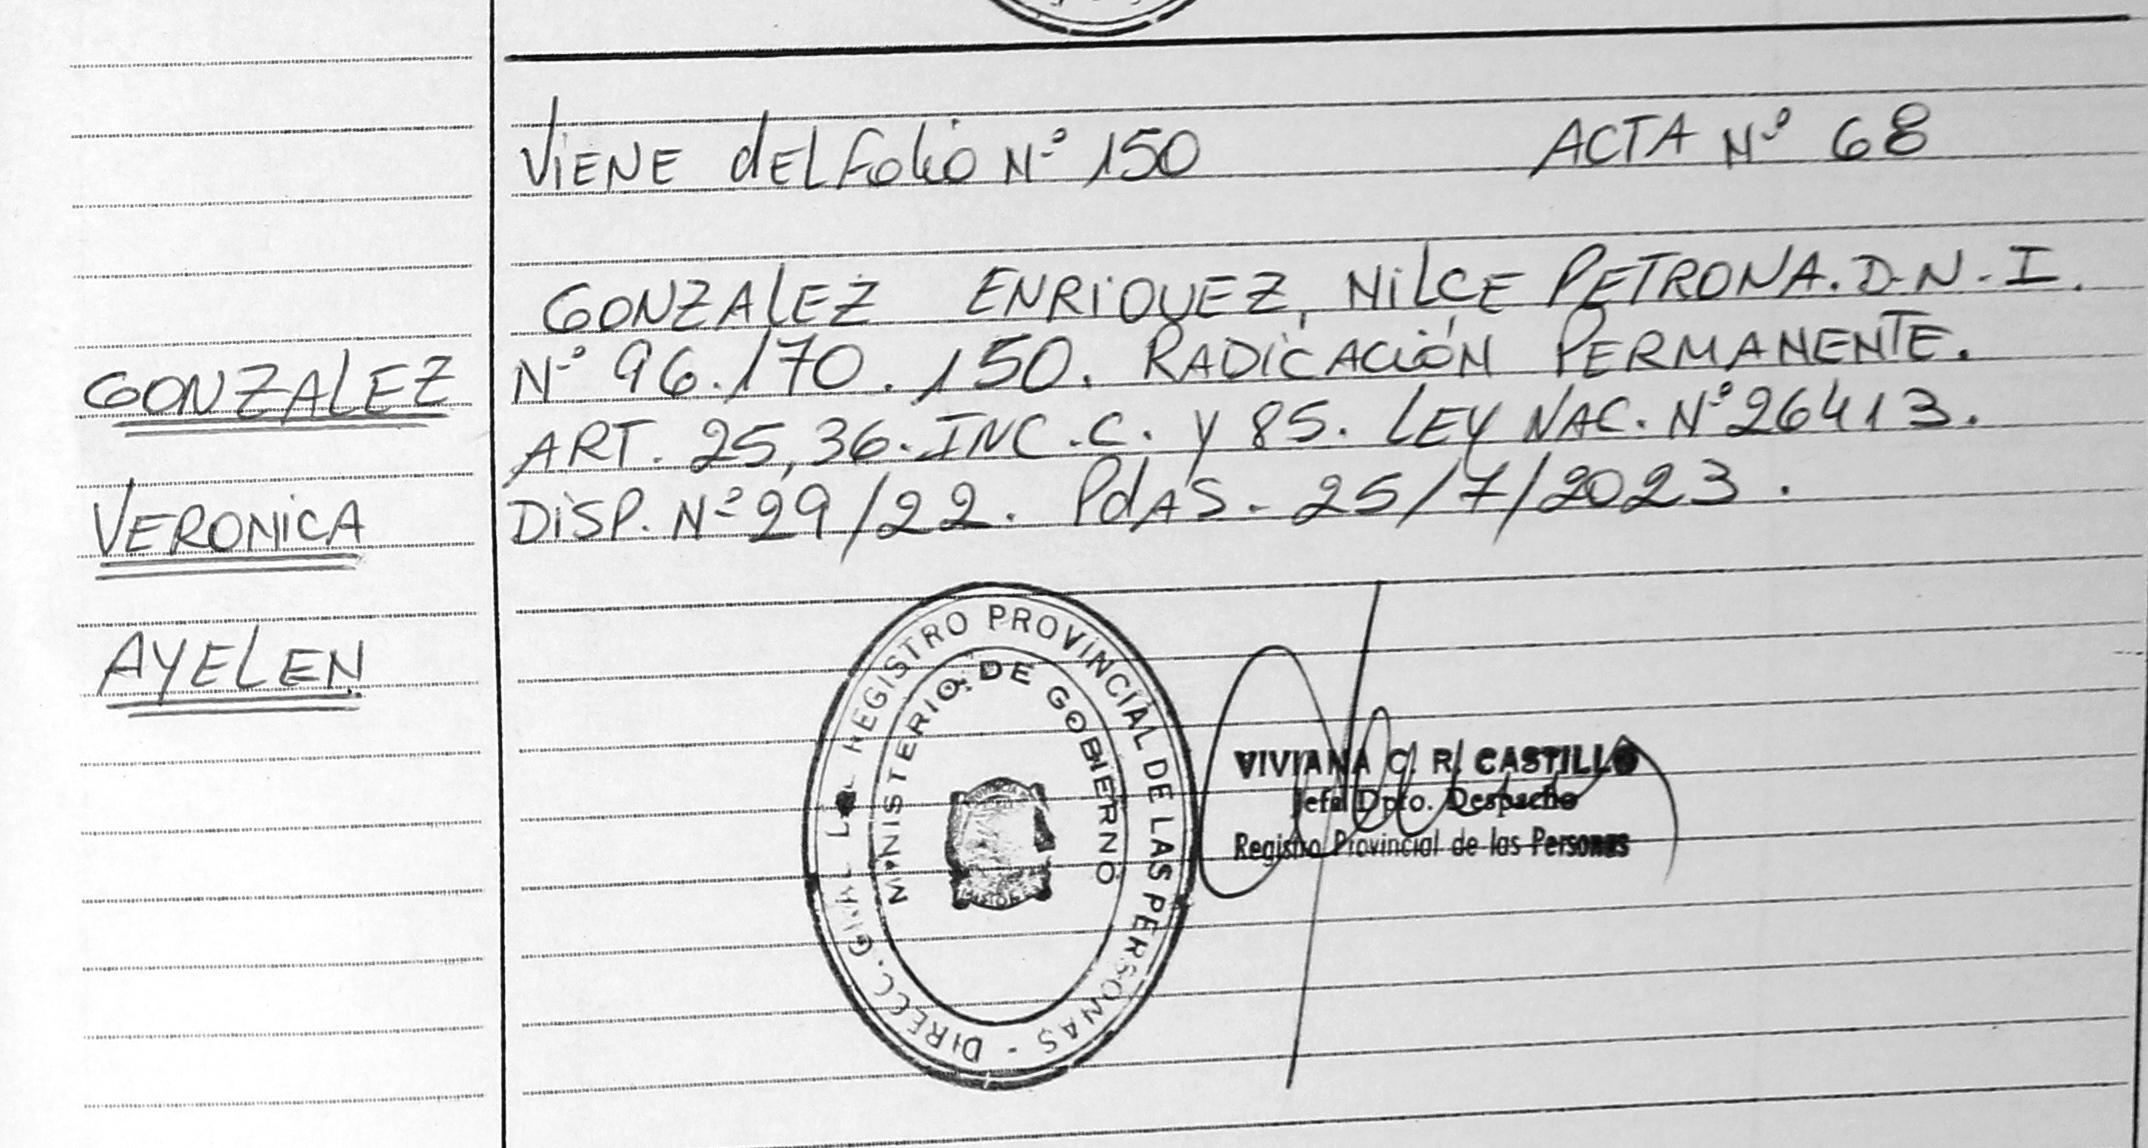 VIENE dEL Folio Nº 150 ACTA Nº 68
GONZALEZ ENRIQUEZ, NILCE PETRONA. D.N.I.
Nº 96.170.150. RADICACIÓN PERMANENTE.
ART. 25, 36. INC. C. y 85. LEY NAC. Nº 26413.
DISP. Nº 29/22. PdAS. 25/7/2023.
GONZALEZ
VERONICA
AYELEN
REGISTRO PROVINCIAL DE LAS PERSONAS - DIRECC. GRAL
MINISTERIO DE GOBIERNO
VIVIANA C. R. CASTILLO
Jefa Dpto. Despacho
Registro Provincial de las Personas